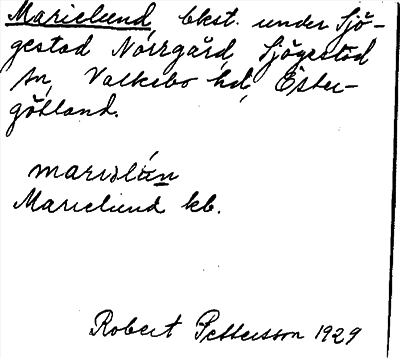 Marielund, bkst. under Sjö-
gestad Norrgård, Sjögestad
sn, Valkebo hd, Öster-
götland.
marıəlún
Marielund kb.
Robert Pettersson 1929